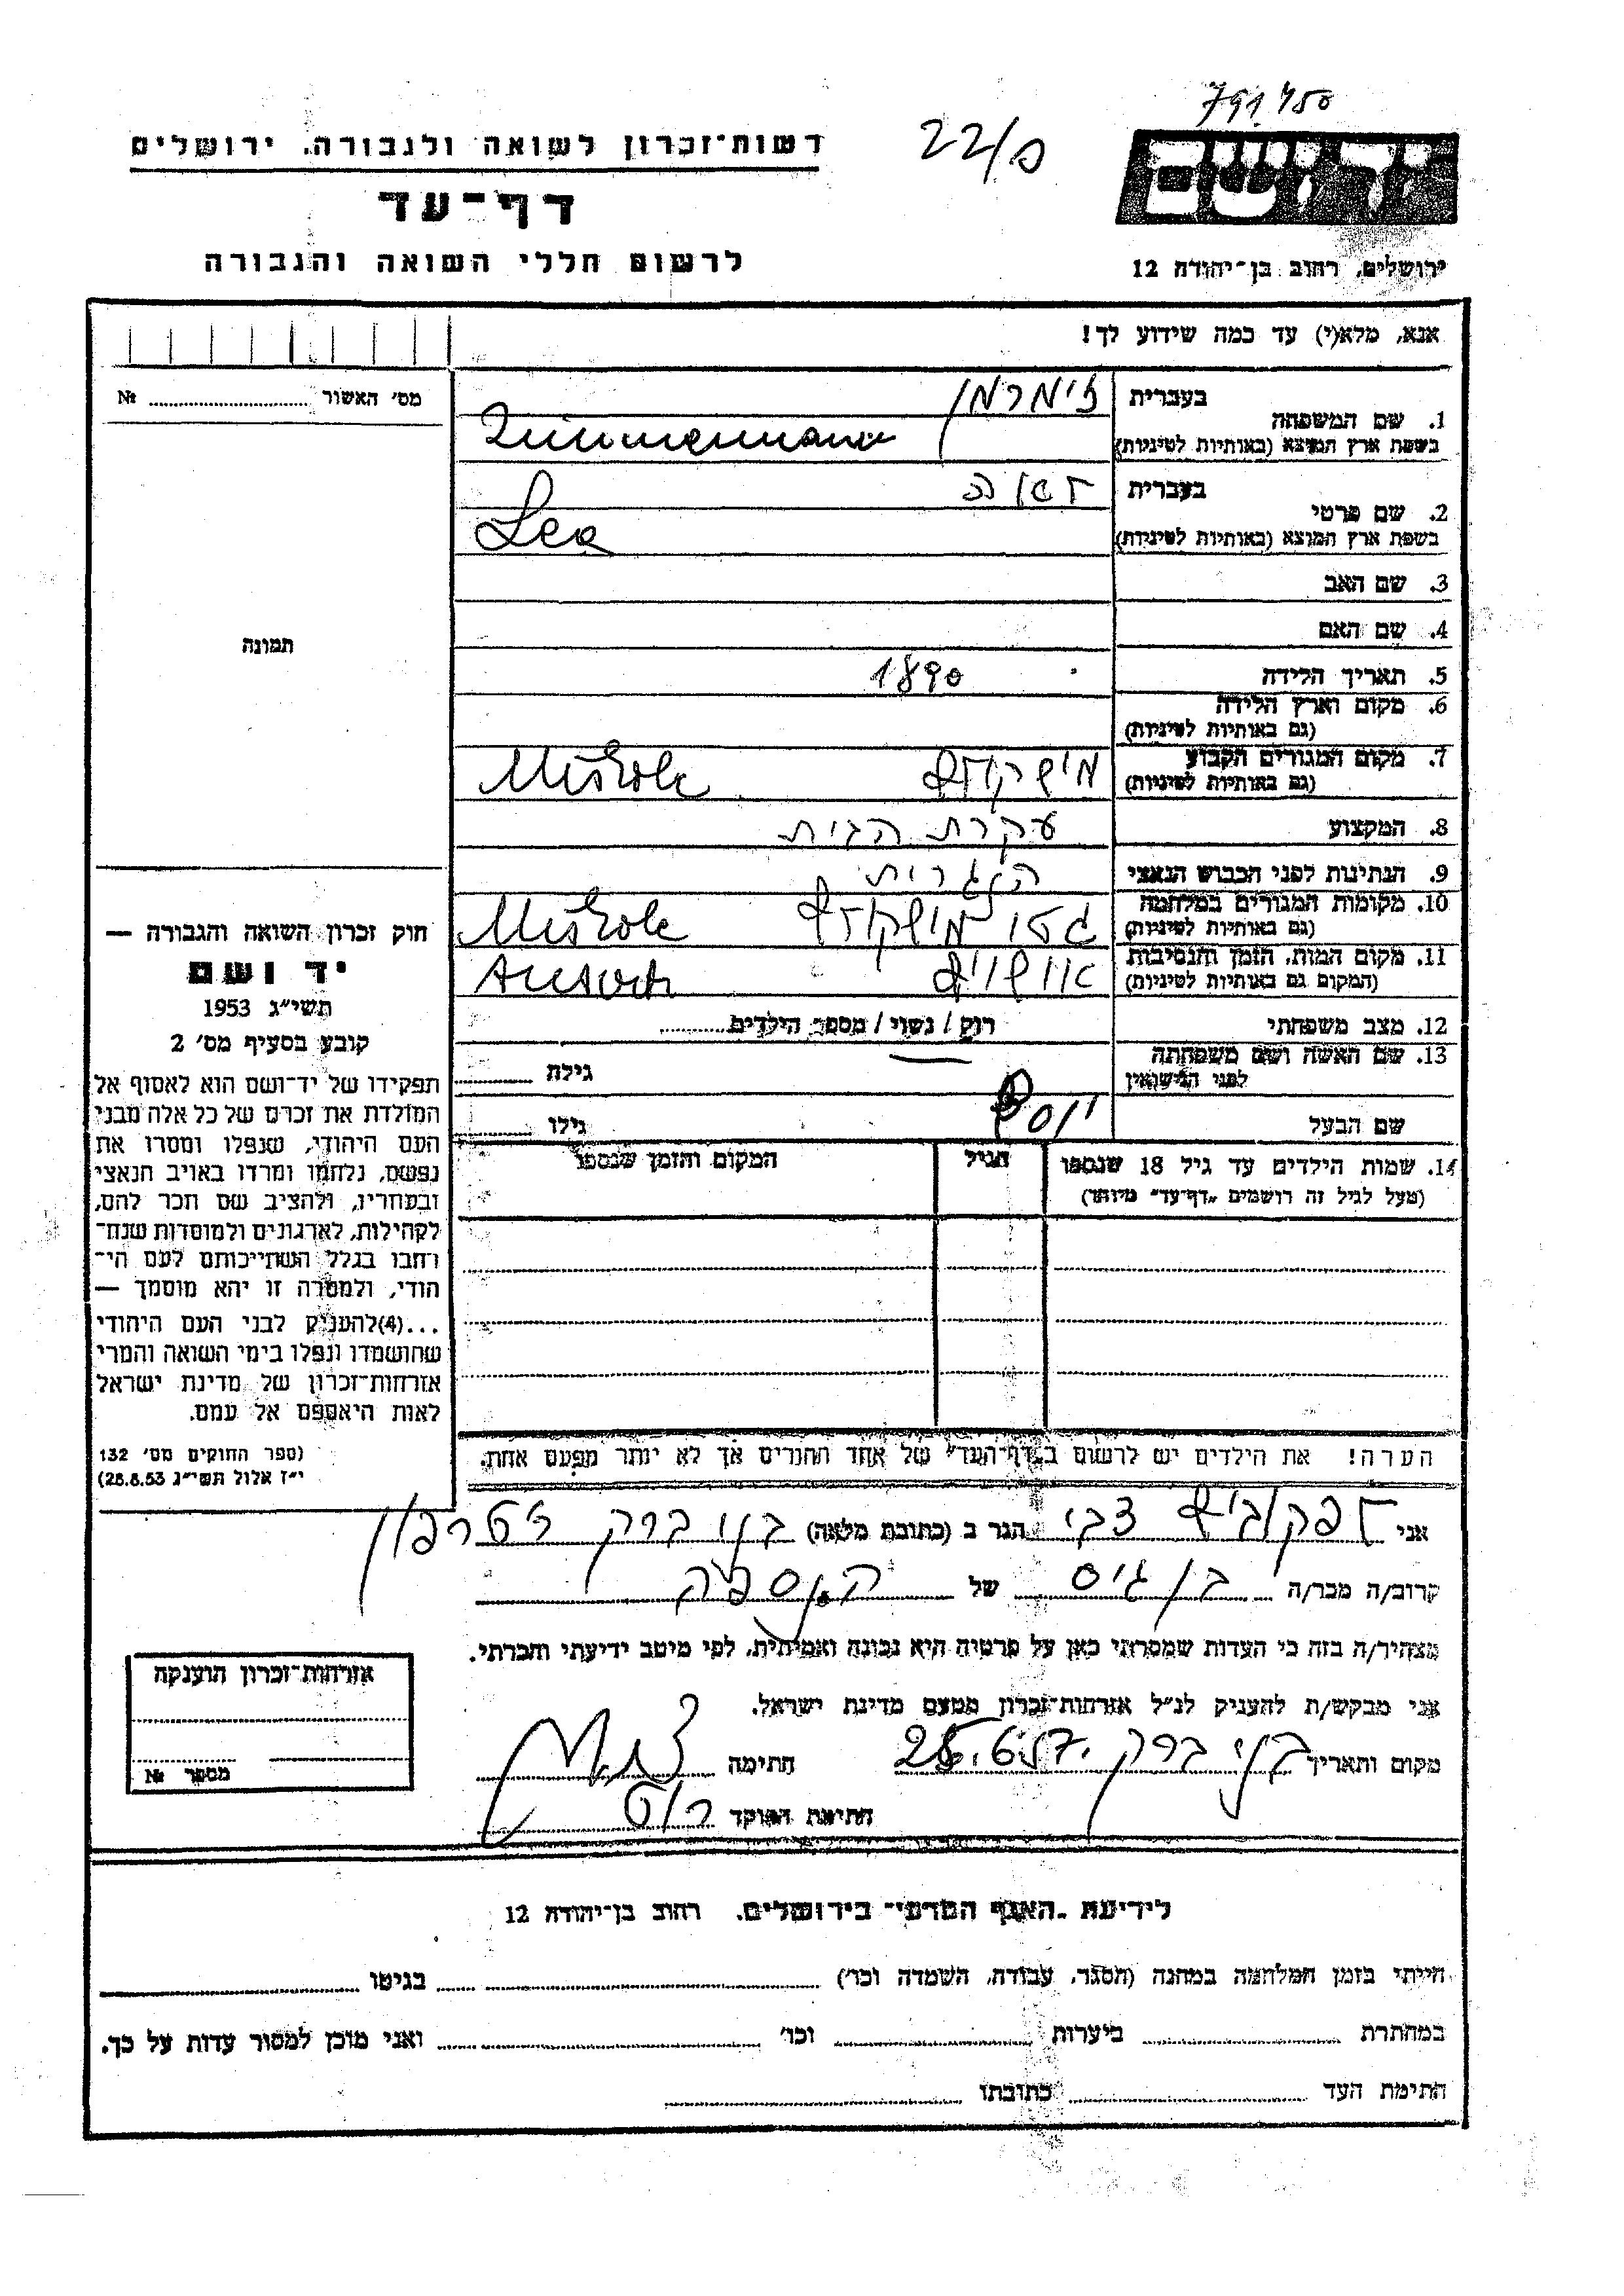 791 450
22/ס
רשות־זכרון לשואה ולגבורה, ירושלים
דף־עד
לרשום חללי השואה והגבורה
יד ושם
ירושלים, רחוב בן־יהודה 12
אנא, מלא(י) עד כמה שידוע לך!
מס׳ האשור № 
תמונה
1. שם המשפחה
בעברית צימרמן
בשפת ארץ המוצא (באותיות לטיניות) Zimmermann
2. שם פרטי
בעברית לאה
בשפת ארץ המוצא (באותיות לטיניות) Lea
3. שם האב
4. שם האם
5. תאריך הלידה 1890
6. מקום וארץ הלידה
(גם באותיות לטיניות)
7. מקום המגורים הקבוע מישקולץ Miskolc
(גם באותיות לטיניות)
8. המקצוע עקרת הבית
9. הנתינות לפני הכבוש הנאצי הונגרית
10. מקומות המגורים במלחמה גטו מישקולץ Miskolc
(גם באותיות לטיניות)
11. מקום המות, הזמן והנסיבות אושויץ
(המקום גם באותיות לטיניות)
12. מצב משפחתי רוק / נשוי / מספר הילדים
13. שם האשה ושם משפחתה
לפני הנישואין גילה
שם הבעל יוסף גילו
14. שמות הילדים עד גיל 18 שנספו הגיל המקום והזמן שנספו
(מעל לגיל זה רושמים „דף־עד״ מיוחד)
הערה! את הילדים יש לרשום ב„דף־העד״ של אחד ההורים אך לא יותר מפעם אחת.
חוק זכרון השואה והגבורה —
יד ושם
תשי״ג 1953
קובע בסעיף מס׳ 2
תפקידו של יד־ושם הוא לאסוף אל
המולדת את זכרם של כל אלה מבני
העם היהודי, שנפלו ומסרו את
נפשם, נלחמו ומרדו באויב הנאצי
ובעוזריו, ולהציב שם וזכר להם,
לקהילות, לארגונים ולמוסדות שנח־
רבו בגלל השתייכותם לעם הי־
הודי, ולמטרה זו יהא מוסמך —
...(4) להעניק לבני העם היהודי
שהושמדו ונפלו בימי השואה והמרי
אזרחות־זכרון של מדינת ישראל
לאות היאספם אל עמם.
(ספר החוקים מס׳ 132
י״ז אלול תשי״ג 28.8.53)
אני צבי הגר ב (כתובת מלאה) בני ברק
קרוב/ה מכר/ה בן גיס של
מצהיר/ה בזה כי העדות שמסרתי כאן על פרטיה היא נכונה ואמיתית, לפי מיטב ידיעתי והכרתי.
אני מבקש/ת להעניק לנ״ל אזרחות־זכרון מטעם מדינת ישראל.
מקום ותאריך בני ברק חתימה
חתימת הפוקד
אזרחות־זכרון הוענקה
מספר №
לידיעת „האגף המדעי״ בירושלים, רחוב בן־יהודה 12
הייתי בזמן המלחמה במחנה (הסגר, עבודה, השמדה וכו׳) בגיטו
במחתרת ביערות וכו׳ ואני מוכן למסור עדות על כך.
חתימת העד כתובתו